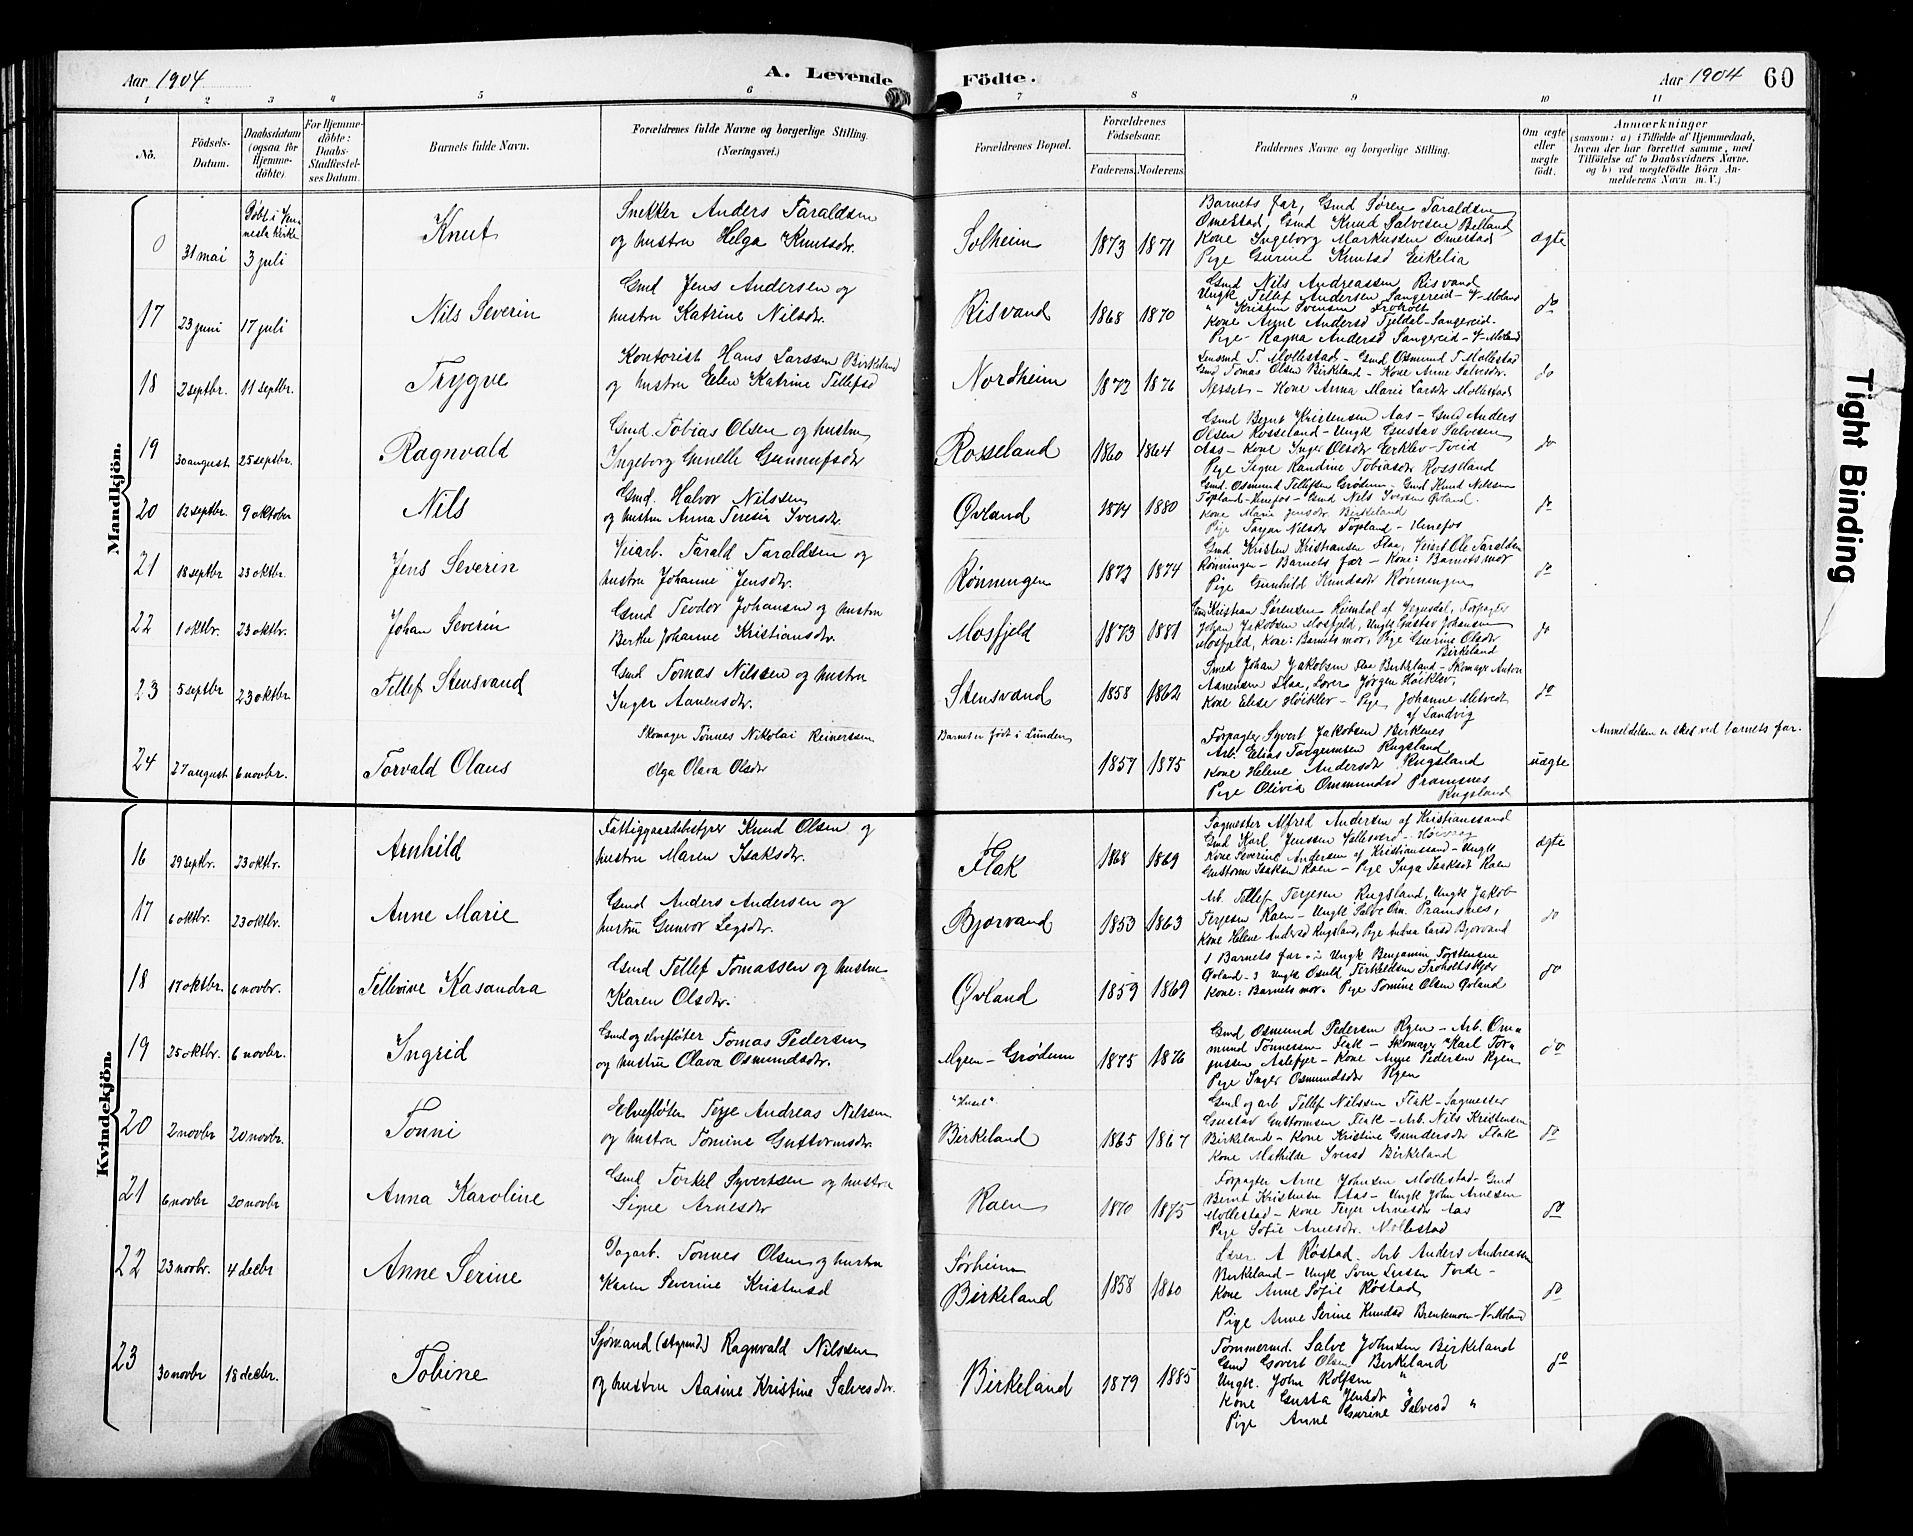 Aar 1904 A. Levende Födte. Aar 1904 60
1 2 3 4 5 6 7 8 9 10 11
No. Födsels-Datum. Daabsdatum (ogsaa for Hjemmedöbte). For Hjemmedöbte: Daabs-Stadfæstelses Datum. Barnets fulde Navn. Forældrenes fulde Navne og borgerlige Stilling. (Næringsvei.) Forældrenes Bopæl. Forældrenes Födselsaar. Faderens. Moderens. Faddernes Navne og borgerlige Stilling. Om ægte eller uægte födt. Anmærkninger
(saasom: a) i Tilfælde af Hjemmedaab,
hvem der har forrettet samme, med
Tilföielse af to Daabsvidners Navne.
og b) ved uægtefödte Börn An-
melderens Navn m. V.)
Mandkjön.
0 31 mai Döbt i Ven
nesla kirke
3 juli Knut Snekker Anders Taraldsen
og hustru Helga Knutsdr. Solheim 1873 1871 Barnets far, Gmd Søren Taraldsen
Omestad, Gmd Knud Salvesen Belland
Kone Ingeborg Markussen Omestad
Pige Gurine Knutsd Eikelia ægte
17 23 juni 17 juli Nils Severin Gmd Jens Andersen og
hustru Katrine Nilsdr. Risvand 1868 1870 Gmd Nils Andreassen Risvand
Ungk Tellef Andersen Sangereid - V-Moland
" Kristen Svensen
Kone Anne Andersd Tjeldal - Sangereid.
Pige Ragna Andersd Sangereid - V-Moland do
18 2 septbr. 11 septbr. Trygve Kontorist Hans Larssen Birkeland
og hustru Elen Katrine Tellefsd Nordheim 1872 1876 Lensmd T. Mollestad - Gmd Osmund T. Mollestad
Gmd Tomas Olsen Birkeland - Kone Anne Salvesdr.
- Kone Anna Marie Larsdr Mollestad do
19 30 august 25 septbr. Ragnvald Gmd. Tobias Olsen og hustru
Ingeborg Gunelle Gunnufsdr Rosseland 1860 1864 Gmd Bernt Kristensen Aas - Gmd Anders
Olsen Rosseland - Ungk Gustav Salvesen
Aas - Kone Inge Olsdr Eerklev - Tveid
Pige Signe Kandine Tobiasdr Rosseland do
20 12 septbr. 9 oktober Nils Gmd. Halvor Nilssen
og hustru Anna Teresia Iversdr. Øvland 1874 1880 Gmd. Osmund Tellefsen Grødum - Gmd Knud Nilssen
Topland - Vinefos - Gmd Nils Iversen Øvland.
Kone Marie Jensdr. Birkeland
Pige Targer Nilsdr Topland - Vinefos do
21 18 septbr 23 oktbr. Jens Severin Veiarb. Tarald Taraldsen og
hustru Johanne Jensdr. Rønningen 1872 1874 Gmd Kristen Kristiansen Flaa, Veiarb Ole Taraldsen
Rønningen - Barnets far - Kone: Barnets mor
Pige Gunhild Knudsdr Rønningen do
22 1 oktbr. 23 oktbr. Johan Severin Gmd Teodor Johansen og hustru
Berthe Johanne Kristiansdr. Mosfjeld 1873 1881 Gmd Kristian Sørensen Heimdal af Vegusdal, Forpagter
Johan Jakobsen Mosfjeld, Ungk Gustav Johansen
Mosfjeld, Kone: Barnets mor, Pige Gurine Olsdr
Birkeland do
23 5 septbr 23 oktbr. Tellef Stensvand Gmd Tomas Nilssen og hustru
Inger Aanensdr. Stensvand 1858 1862 Smed Johan Jakobsen Flaa Birkeland - Skomager Anton
Aanensen Flaa, Lærer Jørgen Høiklev,
Kone Elise Høiklev - Pige Johanne Metveit
af Landvig do
24 27 august 6 novbr. Torvald Olaus Skomager Tønnes Nikolai Reinertssen
Olga Olava Olsdr Barnet er født i Lunden 1857 1875 Forpagter Syvert Jakobsen Birkenes
Arb. Elias Torgrimsen Rugsland
Kone Helene Andersdr Rugsland
Pige Olivia Ommundsd Pramsnes
Rugsland uægte Anmeldelsen er sked ved barnets far.
Kvindekjön.
16 29 septbr. 23 oktbr. Arnhild Fattiggaardsbestyrer Knud Olsen og
hustru Maren Isaksdr. Flak 1868 1869 Sagmester Alfred Andersen af Kristianssand
Gmd Karl Jenssen Vallesverd - Høivaag
Kone Severine Andersen af Kristianssand - Ungk
Guttorm Isaksen Raen - Pige Inga Isaksdr Raen ægte
17 6 oktbr. 23 oktbr. Anne Marie Gmd Anders Andersen og
hustru Gunvor Legsdr. Bjorvand 1853 1863 Arb. Tellef Terjesen Rugsland, Ungk Jakob
Terjesen Raen - Ungk Salve Om. Pramsnes,
Kone Helene Andersd Rugsland, Pige Andrea Larsd Bjorvand do
18 17 oktbr. 6 novbr. Tellevine Kasandra Gmd Tellef Tomassen og hustru
Karen Olsdr. Øvland 1859 1869 1 Barnets far. 2 Ungk Benjamin Torstensen
Øvland - 3 Ungk Osuld Terkeldsen Froholtskjær
Kone: Barnets mor. Pige Tomine Olsen Øvland do
19 25 oktbr. 6 novbr. Ingrid Gmd og elvefløter Tomas Pedersen
og hustru Olava Osmundsdr. Myren - Grødum 1875 1876 Gmd Osmund Pedersen Rgen - Arb. Om-
mund Tønnessen Flak - Skomager Karl Tor-
jussen Aslefjer - Kone Anne Pedersen Rgen
Pige Inger Osmundsdr Rgen do
20 2 novbr 20 novbr. Tonni Elvefløter Terje Andreas Nilssen
og hustru Tomine Guttormsdr. "Huset"
Birkeland 1865 1867 Gmd og arb Tellef Nilssen Flak - Sagmester
Gustav Guttormsen Flak - Arb. Nils Kristensen
Birkeland - Kone Kristine Gundersdr Flak
Kone Mathilde Iversd Birkeland do
21 6 novbr 20 novbr Anna Karoline Gmd Torkel Syvertsen og hustru
Signe Arnesdr Raen 1870 1875 Forpagter Arne Johnsen Mollestad - Gmd
Bernt Kristensen Aas - Ungk John Arnesen
Mollestad - Kone Terjer Arnesdr Aas
Pige Sofie Arnesdr. Mollestad do
22 23 novbr. 4 decbr Anne Serine Dagarb. Tønnes Olsen og hustru
Karen Severine Kristensd Sørheim
Birkeland 1858 1860 Lærer A Røstad. Arb Anders Andreassen
Birkeland - Ungk Sven Larsen Tveide -
Kone Anne Sofie Røstad
Pige Anne Serine Knudsd Brentemoen - V-Moland do
23 30 novbr 18 decbr. Tobine Sjømand (styrmd) Ragnvald Nilssen
og hustru Aasine Kristine Salvesdr. Birkeland 1879 1885 Tømmermd. Salve Johnsen Birkeland
Gmd Govert Olsen Birkeland
Ungk. John Rolfsen "
Kone Gusta Jensdr "
Pige Anne Gurine Salvesd " do
Tight Binding